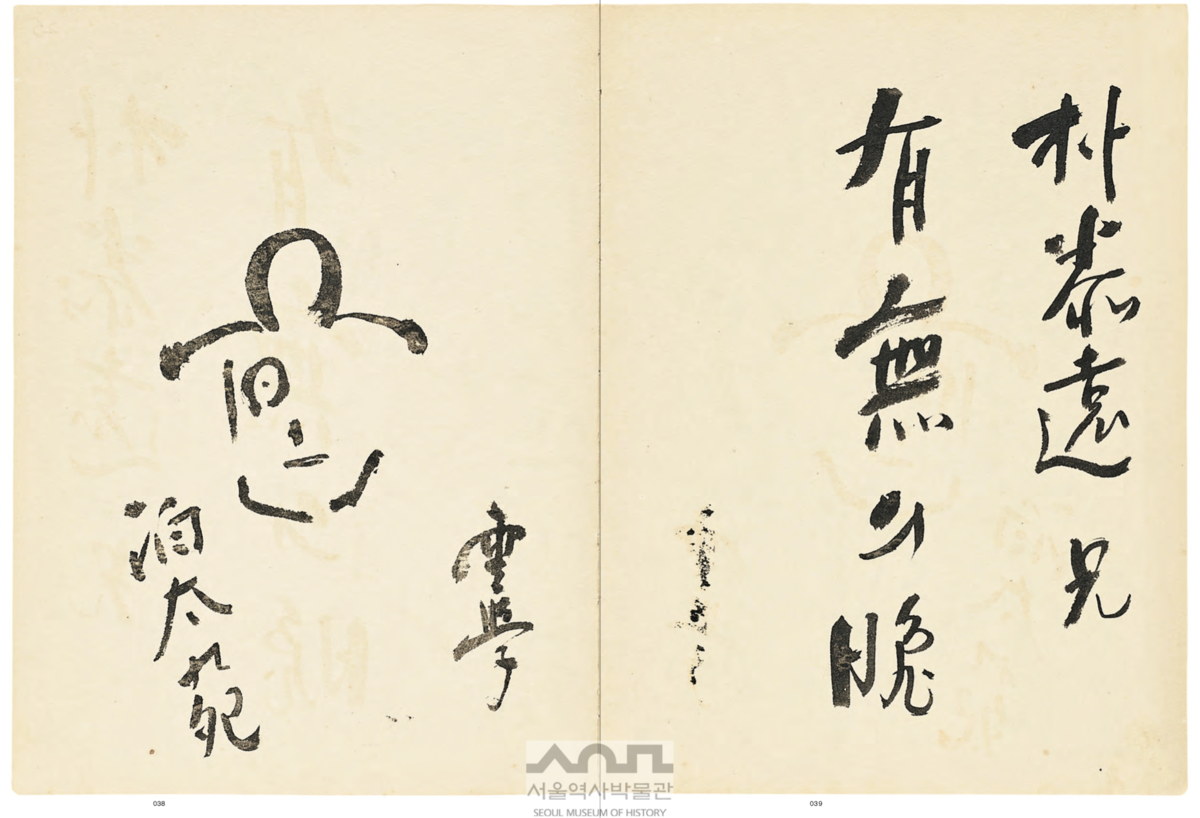 朴泰遠 兄
有無의 晩
雲學
泊太苑
서울역사박물관
SEOUL MUSEUM OF HISTORY
038
039